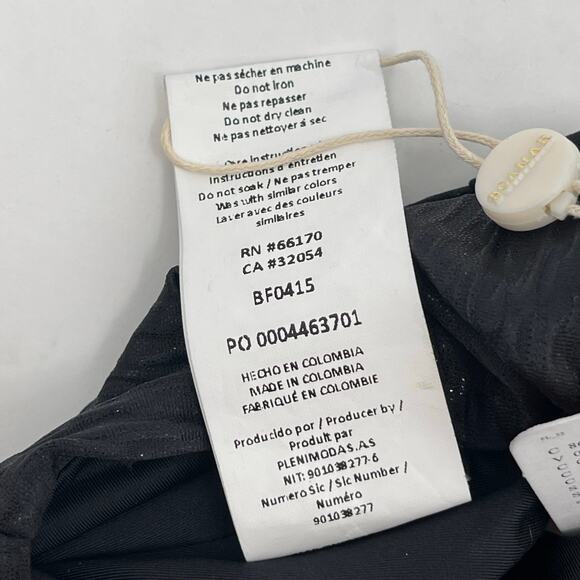 Ne pas sécher en machine
Do not Iron
Ne pas repasser
Do not dry clean
Ne pas nettoyer à sec
Care Instructions
Instructions d'entretien
Do not soak / Ne pas tremper
Was with similar colors
Laver avec des couleurs
similaires
RN #66170
CA #32054
BF0415
PO 0004463701
HECHO EN COLOMBIA
MADE IN COLOMBIA
FABRIQUÉ EN COLOMBIE
Producido por / Producer by /
Produit par
PLENIMODAS.A.S
NIT: 901038277-6
Numero Sic / Sic Number /
Numéro
901038277